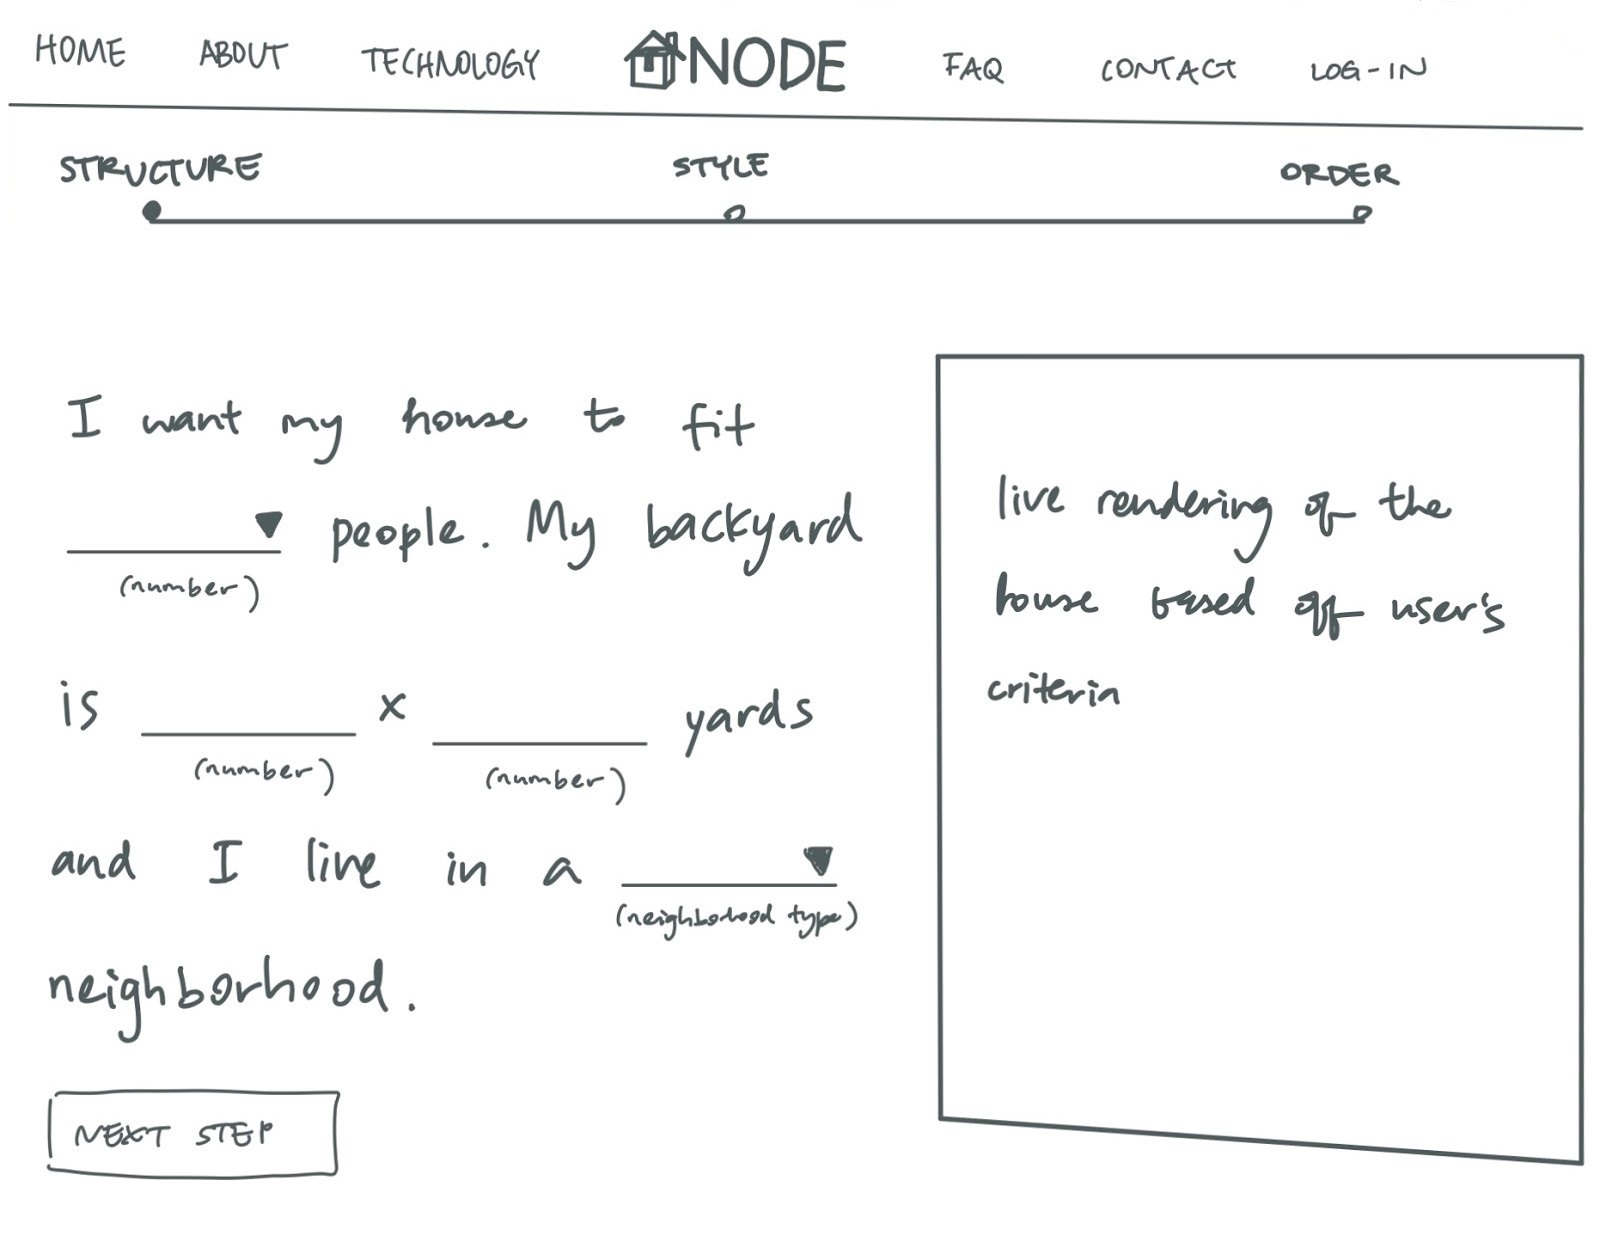 HOME ABOUT TECHNOLOGY NODE FAQ CONTACT LOG-IN
STRUCTURE STYLE ORDER
I want my house to fit
people. My backyard
(number)
is x yards
(number) (number)
and I live in a
(neighborhood type)
neighborhood.
NEXT STEP
live rendering of the
house based off user's
criteria